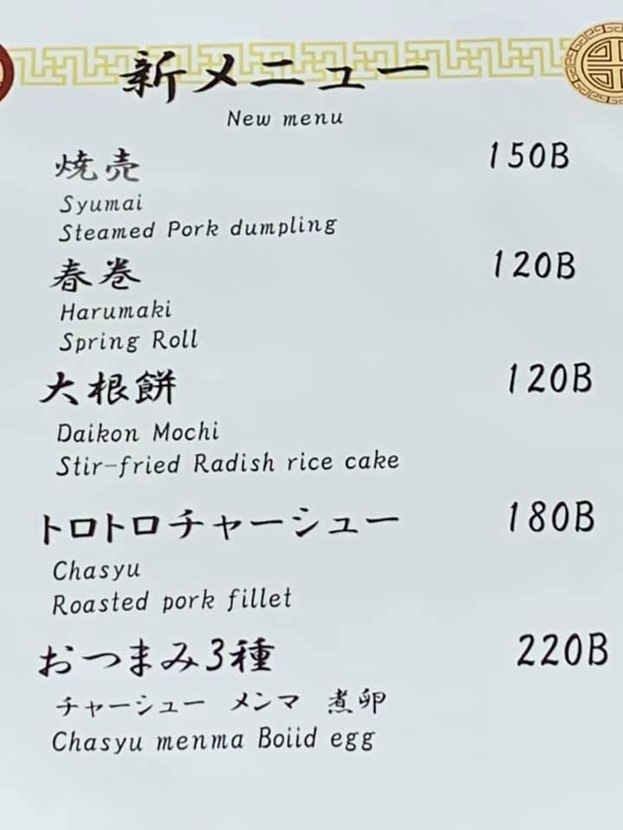 新メニュー
New menu
焼売 150B
Syumai
Steamed Pork dumpling
春巻 120B
Harumaki
Spring Roll
大根餅 120B
Daikon Mochi
Stir-fried Radish rice cake
トロトロチャーシュー 180B
Chasyu
Roasted pork fillet
おつまみ3種 220B
チャーシュー メンマ 煮卵
Chasyu menma Boiid egg